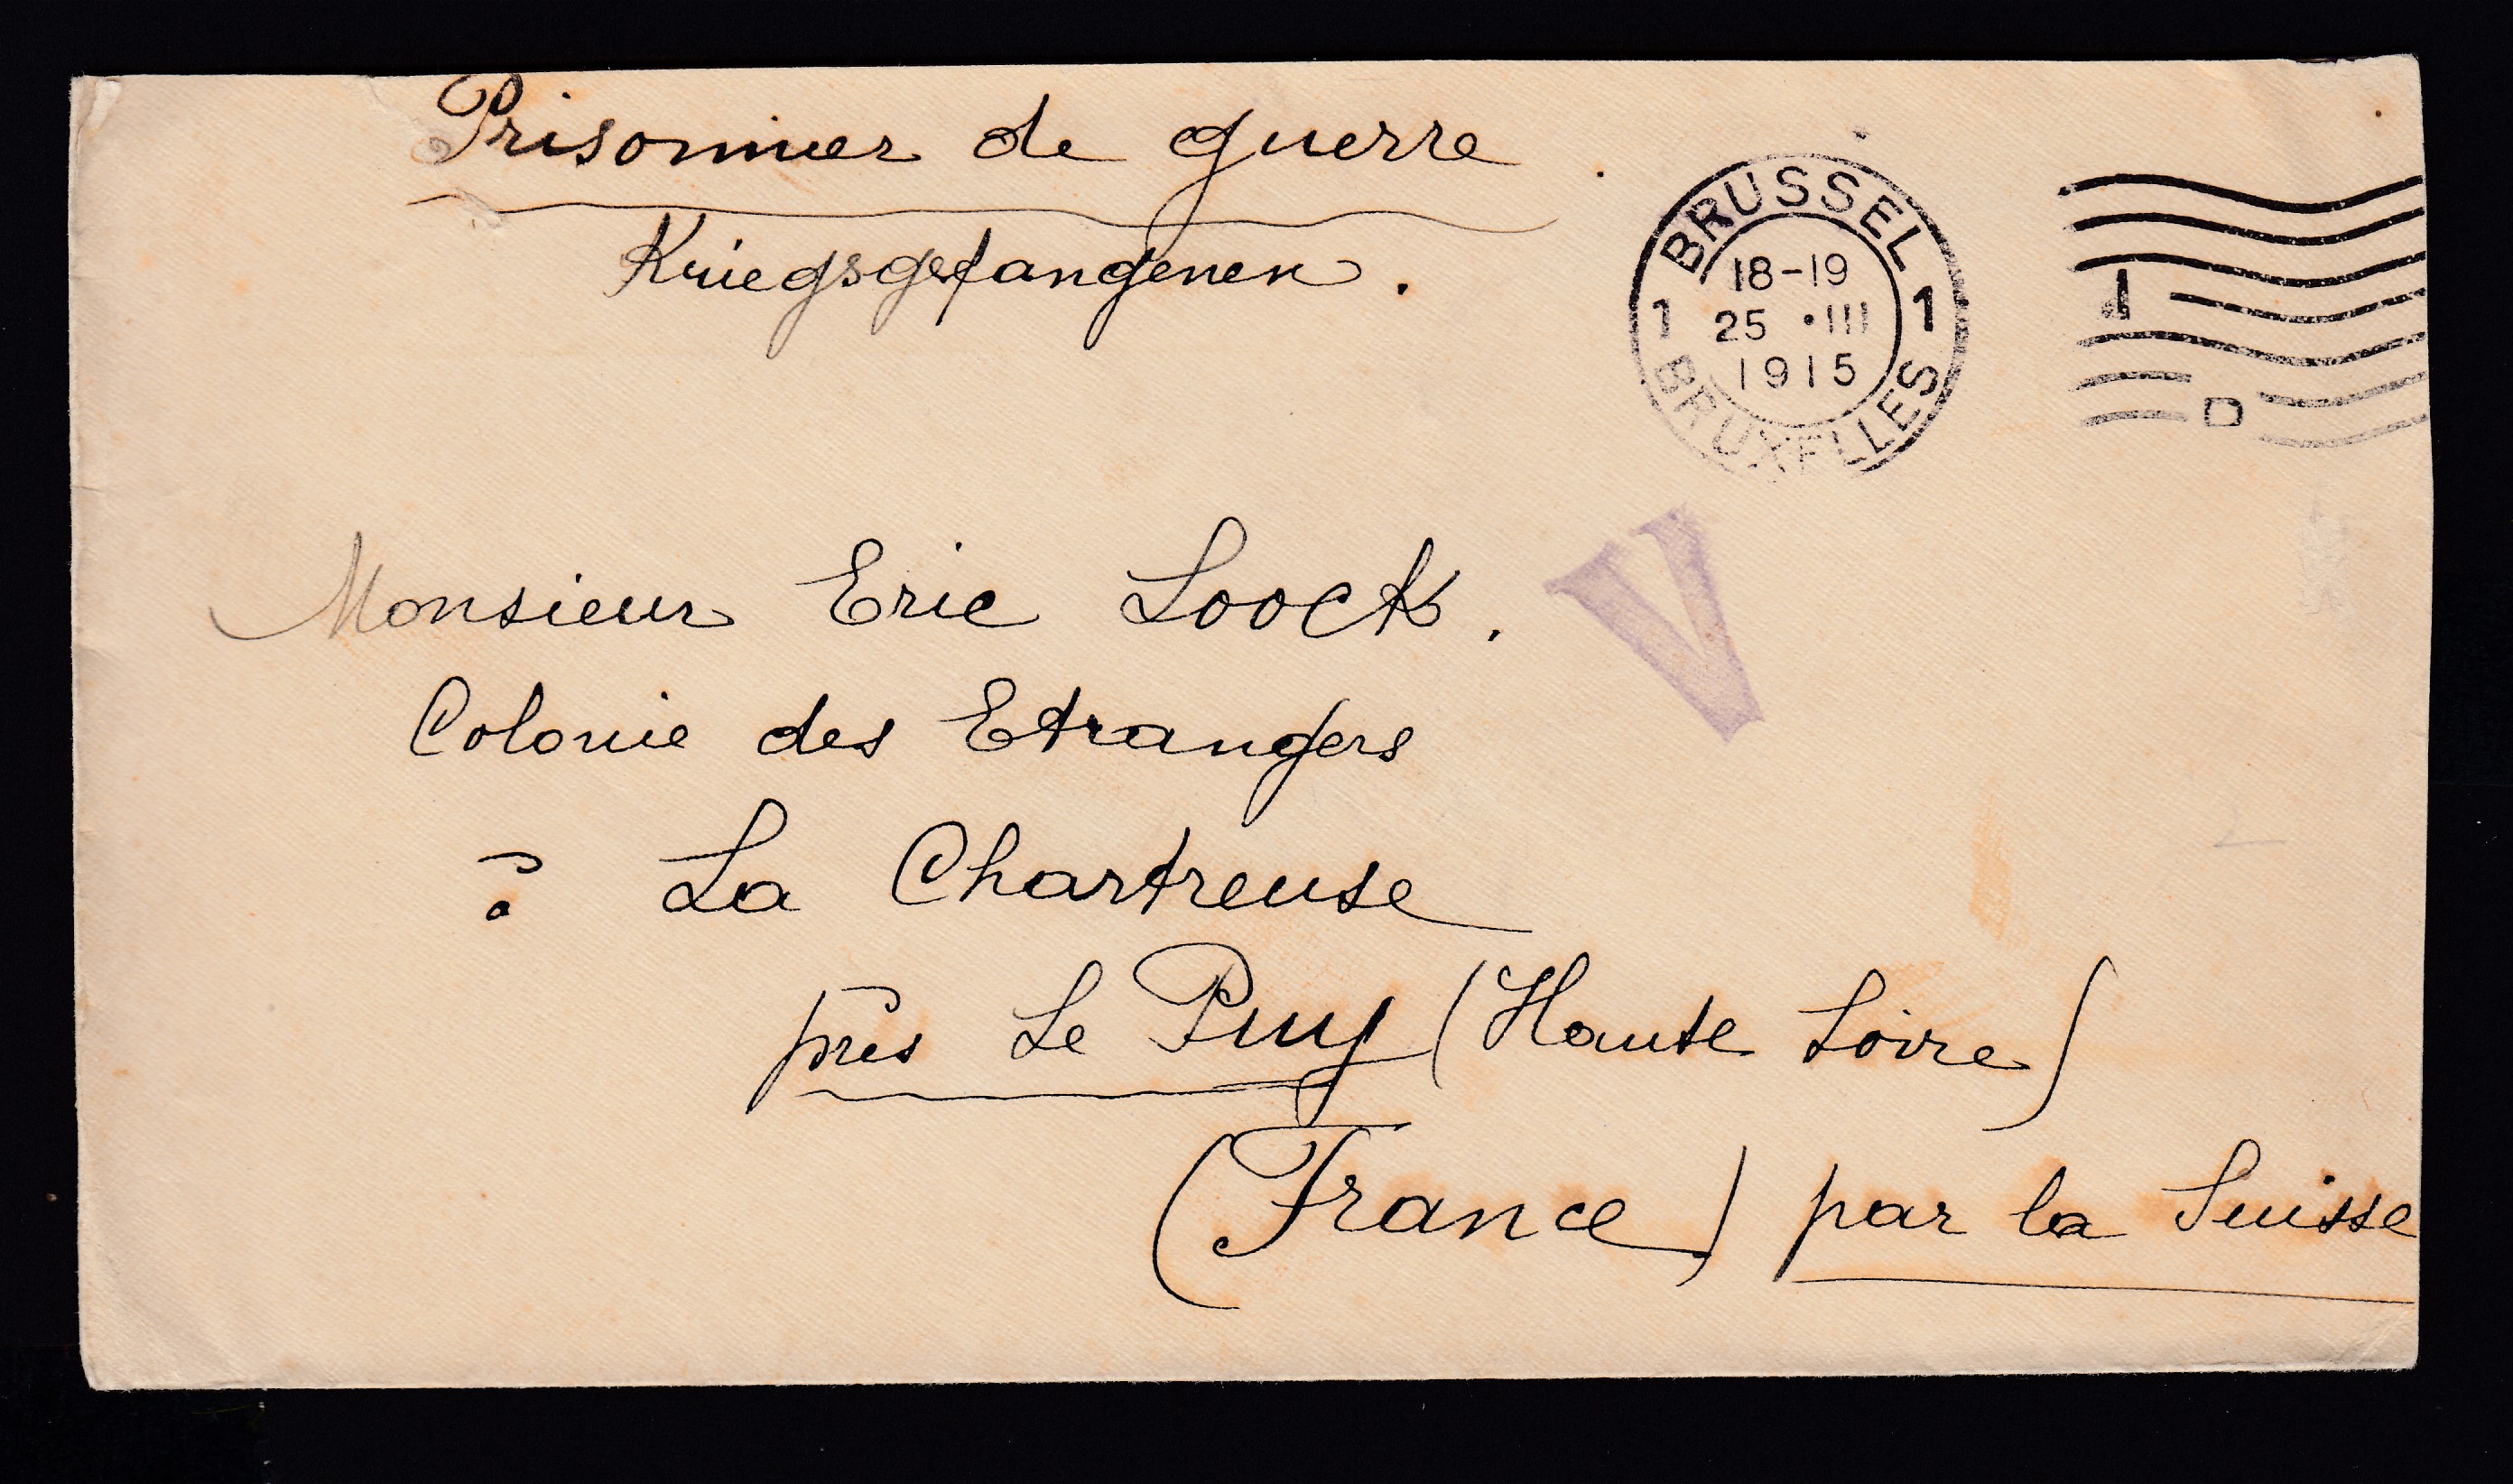 Prisonnier de guerre
Kriegsgefangenen.
BRUSSEL
1 18-19 1
25 •III
1915
BRUXELLES
1
D
V
Monsieur Eric Loock.
Colonie des Etrangers
à La Chartreuse
près Le Puy (Haute Loire)
(France) par la Suisse